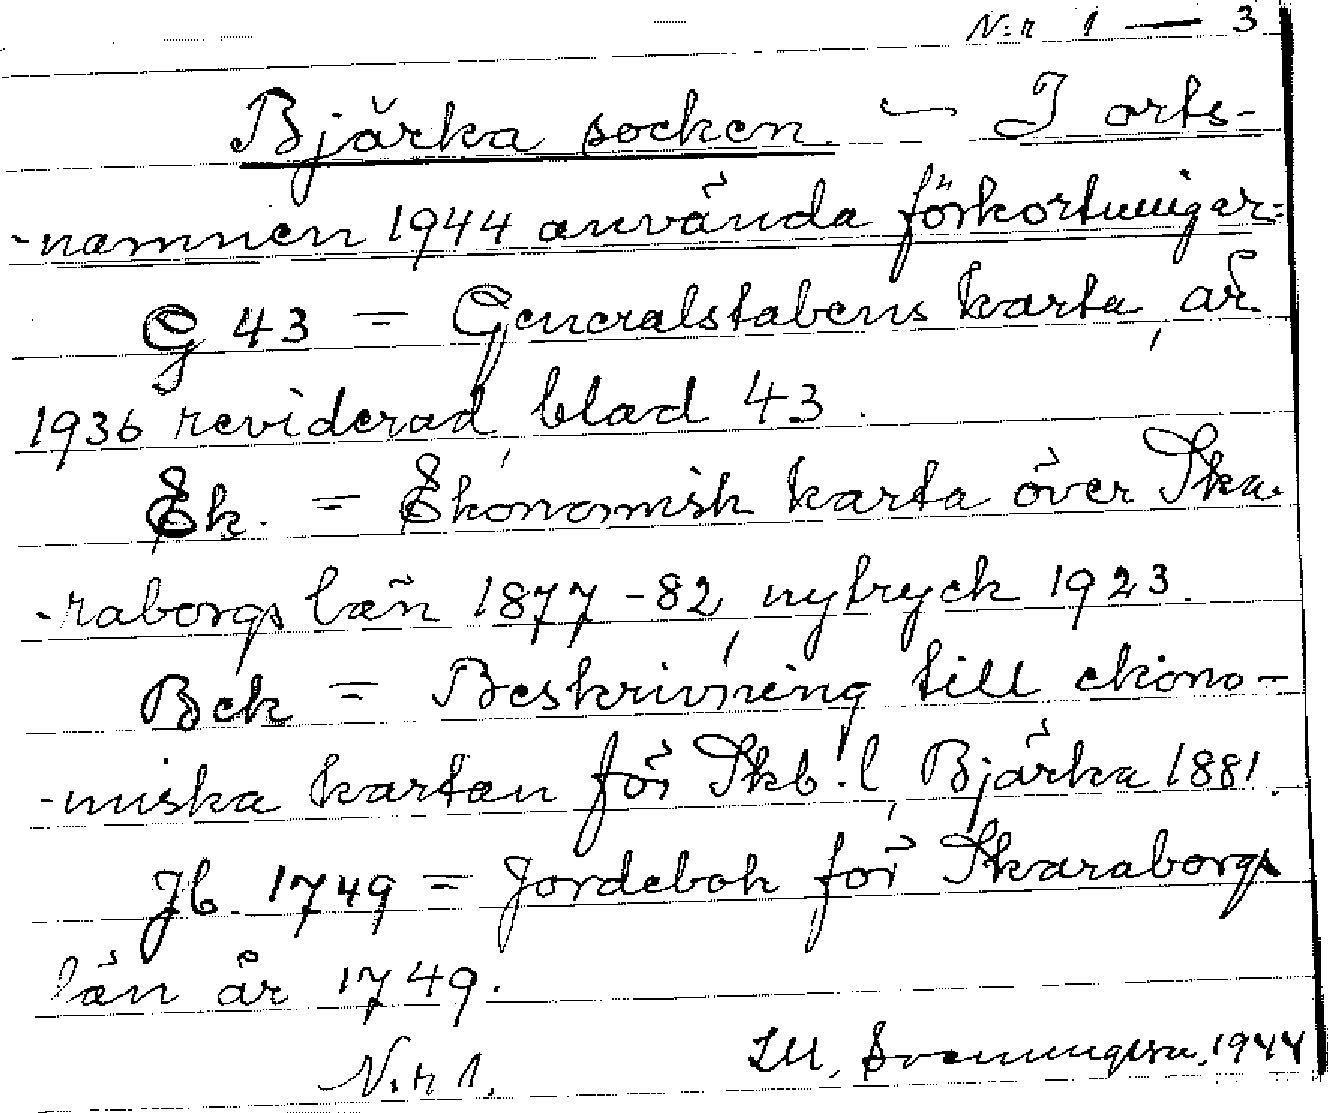 N:r 1 — 3
Bjärka socken. — I orts-
-namnen 1944 använda förkortningar:
G 43 = Generalstabens karta, år
1936 reviderad, blad 43.
Ek. = Ekonomisk karta över Ska-
-raborgs län 1877-82, nytryck 1923.
Bek = Beskrivning till ekono-
-miska kartan för Skb.l, Bjärka 1881.
Jb. 1749 = Jordebok för Skaraborgs
län år 1749.
N:r 1.
1944